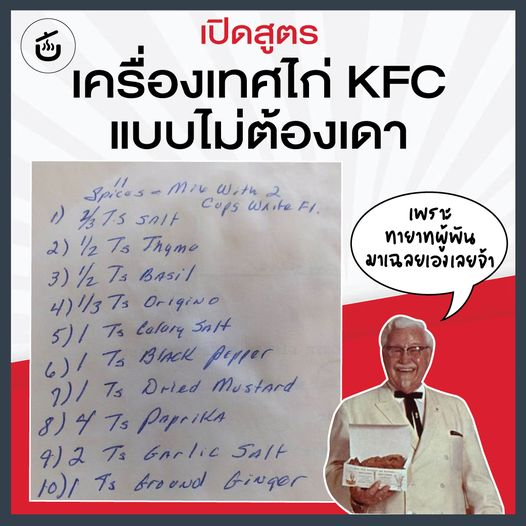 เปิดสูตร
เครื่องเทศไก่ KFC
แบบไม่ต้องเดา
11
Spices = Mix With 2
Cups White Fl.
1) 2/3 Ts Salt
2) 1/2 Ts Thyme
3) 1/2 Ts Basil
4) 1/3 Ts Origino
5) 1 Ts Celory Salt
6) 1 Ts Black Pepper
7) 1 Ts Dried Mustard
8) 4 Ts Paprika
9) 2 Ts Garlic Salt
10) 1 Ts Ground Ginger
เพราะ
ทายาทผู้พัน
มาเฉลยเองเลยจ้า